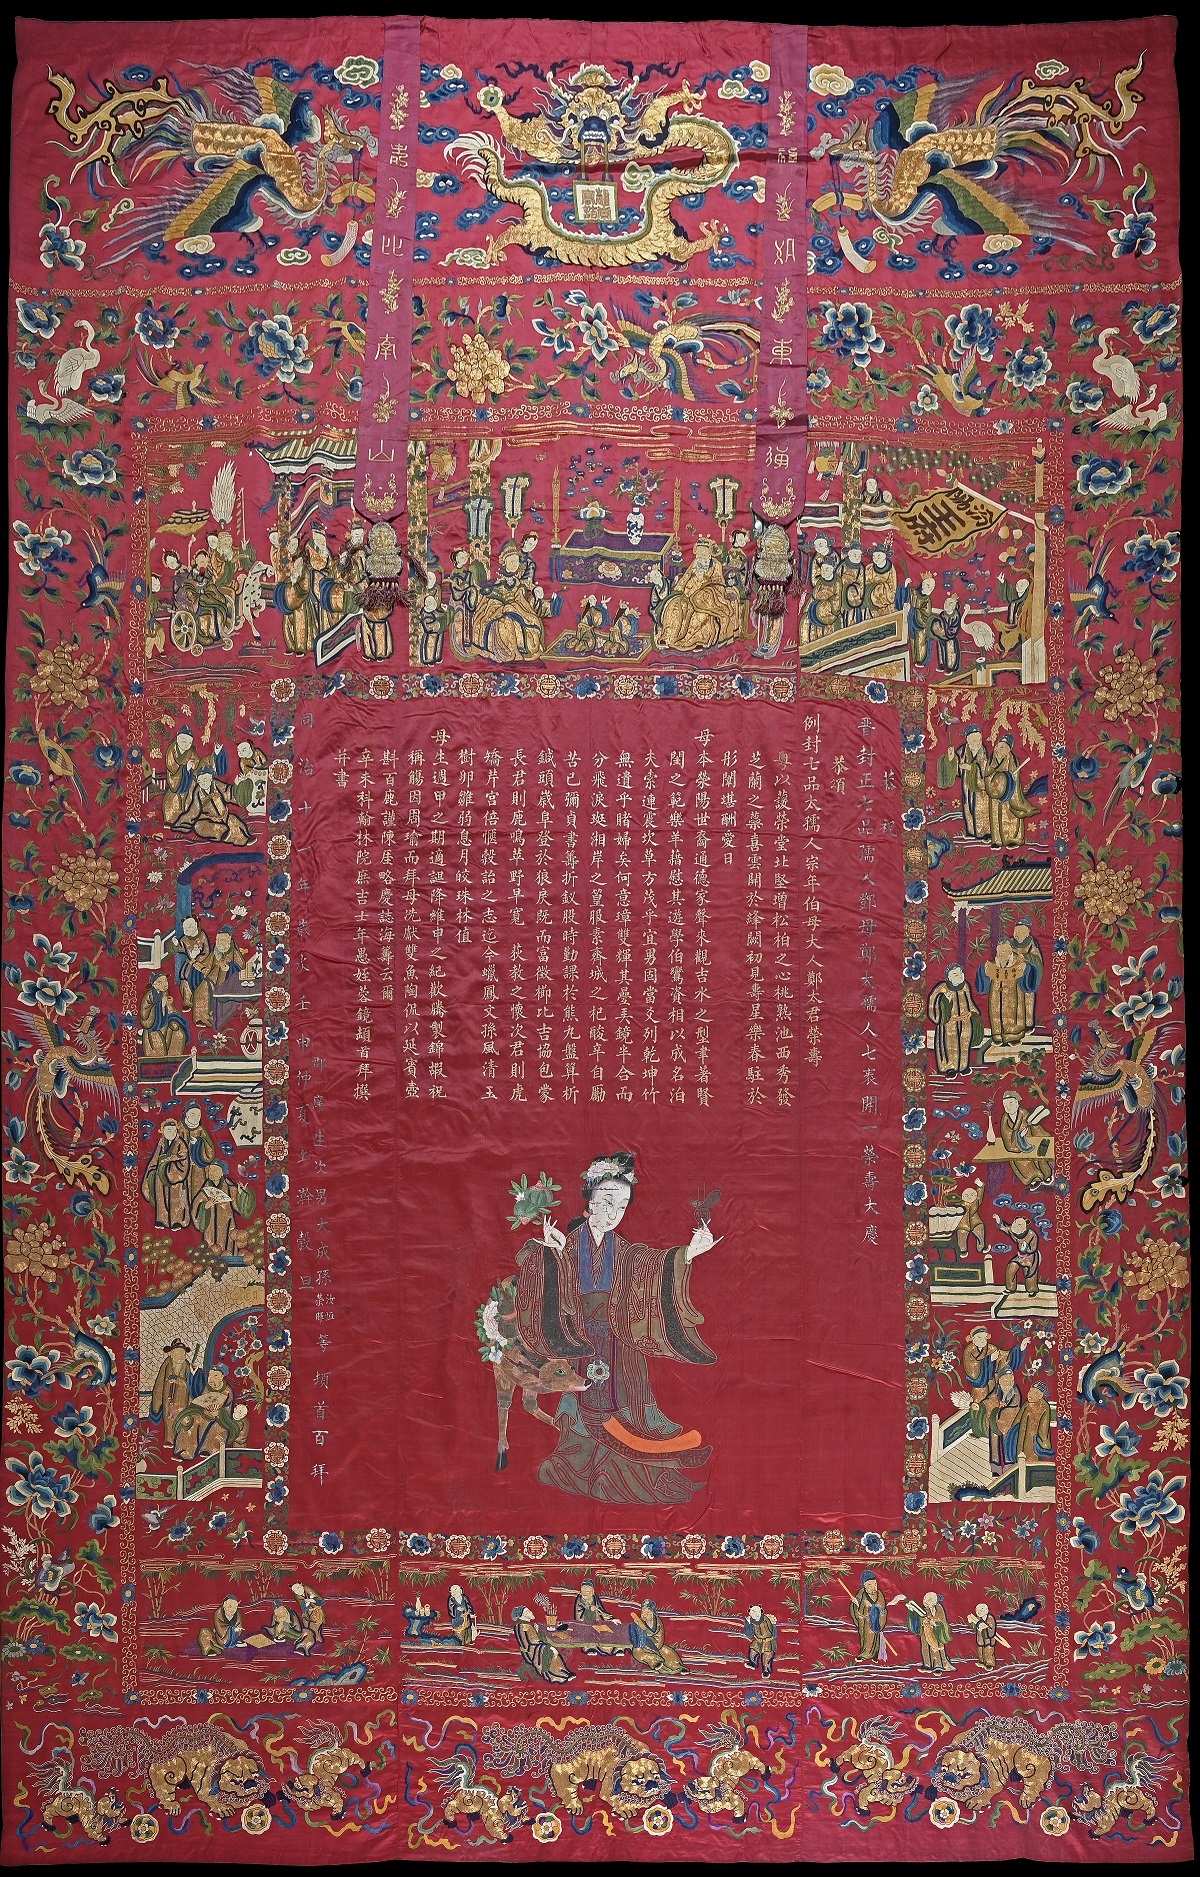 壽比南山
福如東海
汾陽王府
恭祝
晋封正七品孺人鄧母鄭太孺人七袠開一榮壽大慶
恭頌
例封七品太孺人宗年伯母大人鄭太君榮壽
粵以萲榮堂北堅增松柏之心桃熟池西秀發
芝蘭之慕喜雲開於絳闕初見壽星樂春駐於
彤闈堪酬愛日
母本滎陽世裔通德家聲來觀吉水之型聿著賢
閨之範樂羊藉慰其遊學伯鸞資相以成名洎
夫索連震坎草方茂乎宜男固當爻列乾坤竹
無遺乎睹婦矣何意璋雙輝其疊美鏡半合而
分飛淚斑湘岸之篁服素齊城之祀酸辛自勵
苦已彌貞書籌折釵股時勤課於熊丸盤算折
鍼頭歲阜登於狼戾既而昌徴櫛比吉協包蒙
長君則鹿鳴草野早寬 荻教之懷次君則虎
嬌芹宮倍愜穀詒之志迄今蠟鳳文孫風清玉
樹卵雛弱息月皎珠林值
母生週甲之期適誼降維申之紀歡騰製錦嘏祝
稱觴因周瑜而拜母洗獻雙魚陶侃以延賓壺
斟百鹿謹陳厓略慶誌海籌云爾
辛未科翰林院庶吉士年愚姪蓉鏡頓首拜撰
并書
同治十一年歲次壬申仲夏月瀚穀旦
郡庠生次男大成孫等頓首百拜